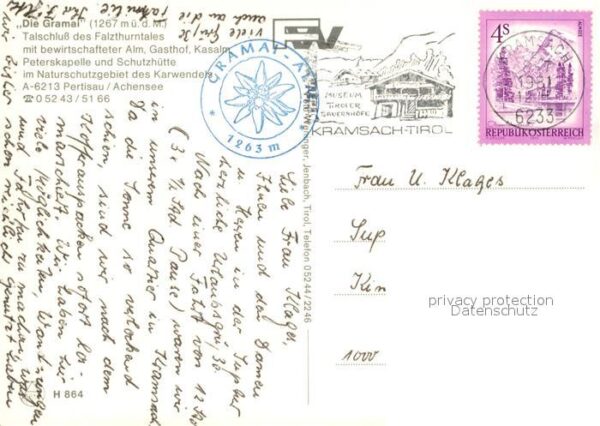 "Die Gramai" (1267 m ü. d. M.)
Talschluß des Falzthurntales
mit bewirtschafteter Alm, Gasthof, Kasalm,
Peterskapelle und Schutzhütte
im Naturschutzgebiet des Karwendels
A-6213 Pertisau / Achensee
☎ 0 52 43 / 51 66
GRAMAI-ALM
* 1263 m *
MUSEUM
TIROLER
BAUERNHÖFE
KRAMSACH-TIROL
4S
REPUBLIK ÖSTERREICH
KRAMSACH
6233
Jenbach, Tirol, Telefon 05244/2246
Frau U. Klages
Sup
Kin
1000
privacy protection
Datenschutz
Liebe Frau Klages,
Ihnen und den Damen
u. Herren in der Suptur
herzliche Urlaubsgrüße.
Nach einer Fahrt von 12 Std
(3 x ½ Std Pause) waren wir
in unserem Quartier in Kramsach.
Da die Sonne so verlockend
schien, sind wir nach dem
Kofferauspacken sofort los-
marschiert. Wir haben hier
viele Möglichkeiten, Wanderungen
und Fahrten zu machen, was
wir bisher schon reichlich genutzt haben.
Viele Grüße
auch an die
H 864